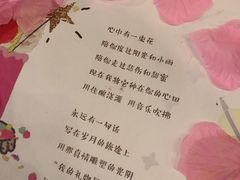 心中有一束花
陪你度过阳光和小雨
陪你走过悲伤和甜蜜
现在我将它种在你的心田
用佳酿浇灌 用音乐吹拂
永远有一句话
写在岁月的旅途上
用那真情雕塑的光阴
我的礼物